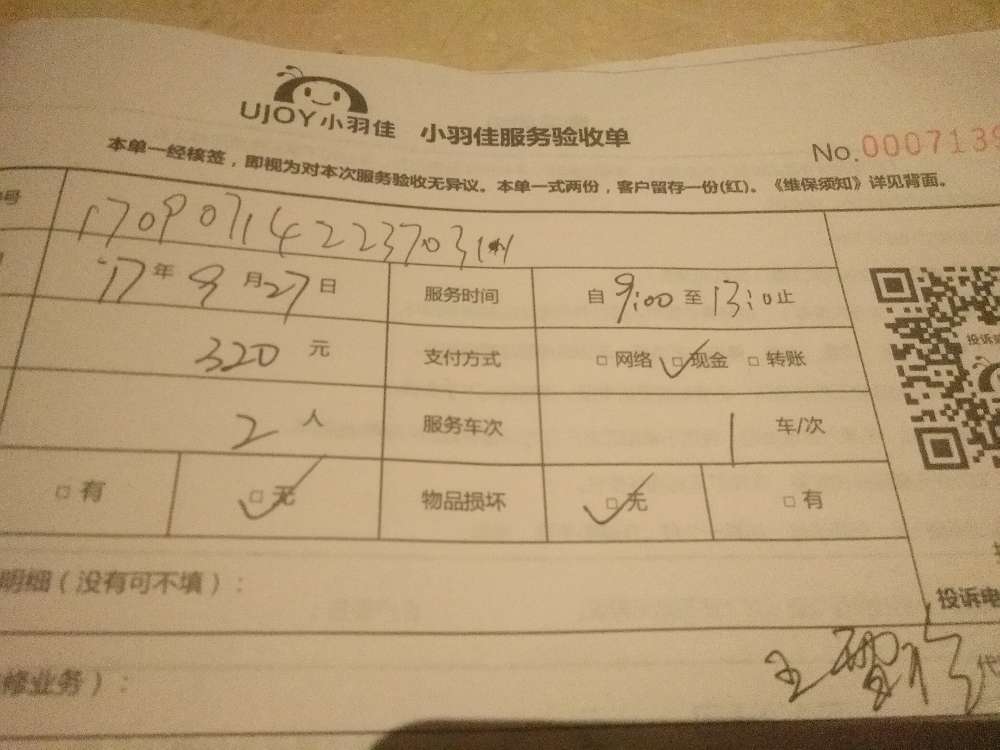 UJOY小羽佳 小羽佳服务验收单
No.0007139
本单一经核签，即视为对本次服务验收无异议。本单一式两份，客户留存一份(红)。《维保须知》详见背面。
号 170907142237031
17年9月27日 服务时间 自9:00至13:10止
320元 支付方式 □网络 □现金 □转账
2人 服务车次 1车/次
□有 □无 物品损坏 □无 □有
明细（没有可不填）：
投诉电
修业务）：
代